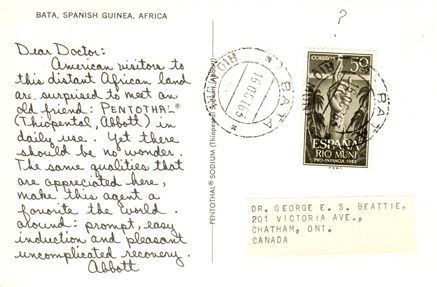 BATA, SPANISH GUINEA, AFRICA
?
Dear Doctor:
American visitors to
this distant African land
are surprised to meet an
old friend: PENTOTHAL®
(Thiopental, Abbott) in
daily use. Yet there
should be no wonder.
The same qualities that
are appreciated here,
make this agent a
favorite the world
around: prompt, easy
induction and pleasant
uncomplicated recovery.
Abbott
PENTOTHAL® SODIUM (Thiopental Sodium, Abbott)
BATA
CORREOS 50
ESPAÑA
RIO MUNI
PRO-INFANCIA
DR. GEORGE E. S. BEATTIE,
201 VICTORIA AVE.,
CHATHAM, ONT.
CANADA